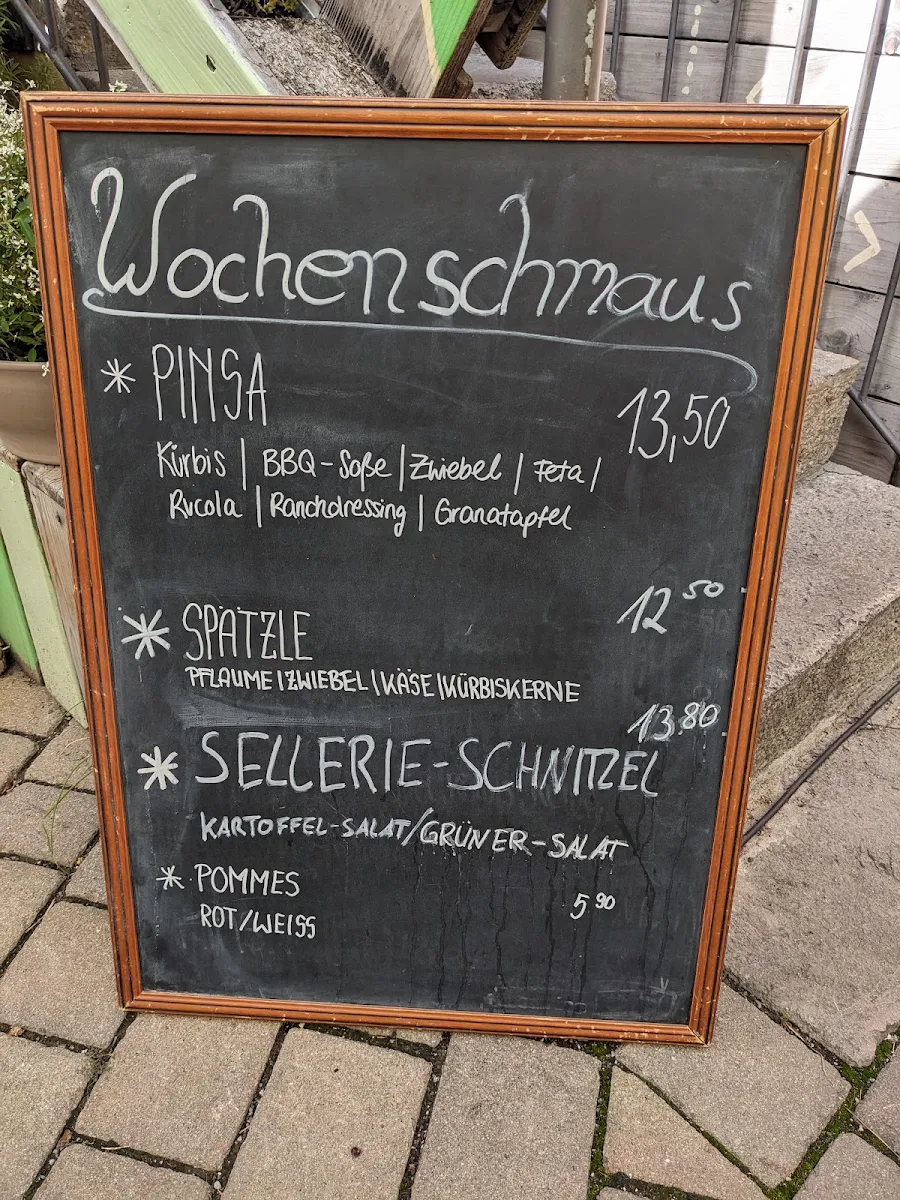 Wochenschmaus
* PINSA 13,50
Kürbis | BBQ-Soße | Zwiebel | Feta |
Rucola | Ranchdressing | Granatapfel
* SPÄTZLE 12 50
PFLAUME | ZWIEBEL | KÄSE | KÜRBISKERNE
13.80
* SELLERIE-SCHNITZEL
KARTOFFEL-SALAT/GRÜNER-SALAT
* POMMES 5 90
ROT/WEISS